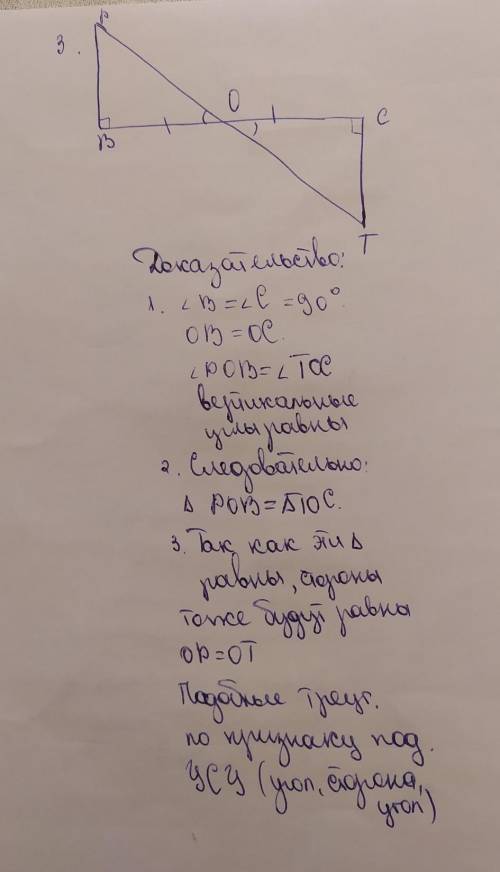 P
3.
O
C
B
T
Доказательство:
1. ∠B = ∠C = 90°
OB = OC.
∠POB = ∠TOC
вертикальные
углы равны
2. Следовательно:
Δ POB = ΔTOC.
3. Так как эти Δ
равны, стороны
тоже будут равны
OP = OT
Подобные треуг.
по признаку под.
УСУ (угол, сторона,
угол)